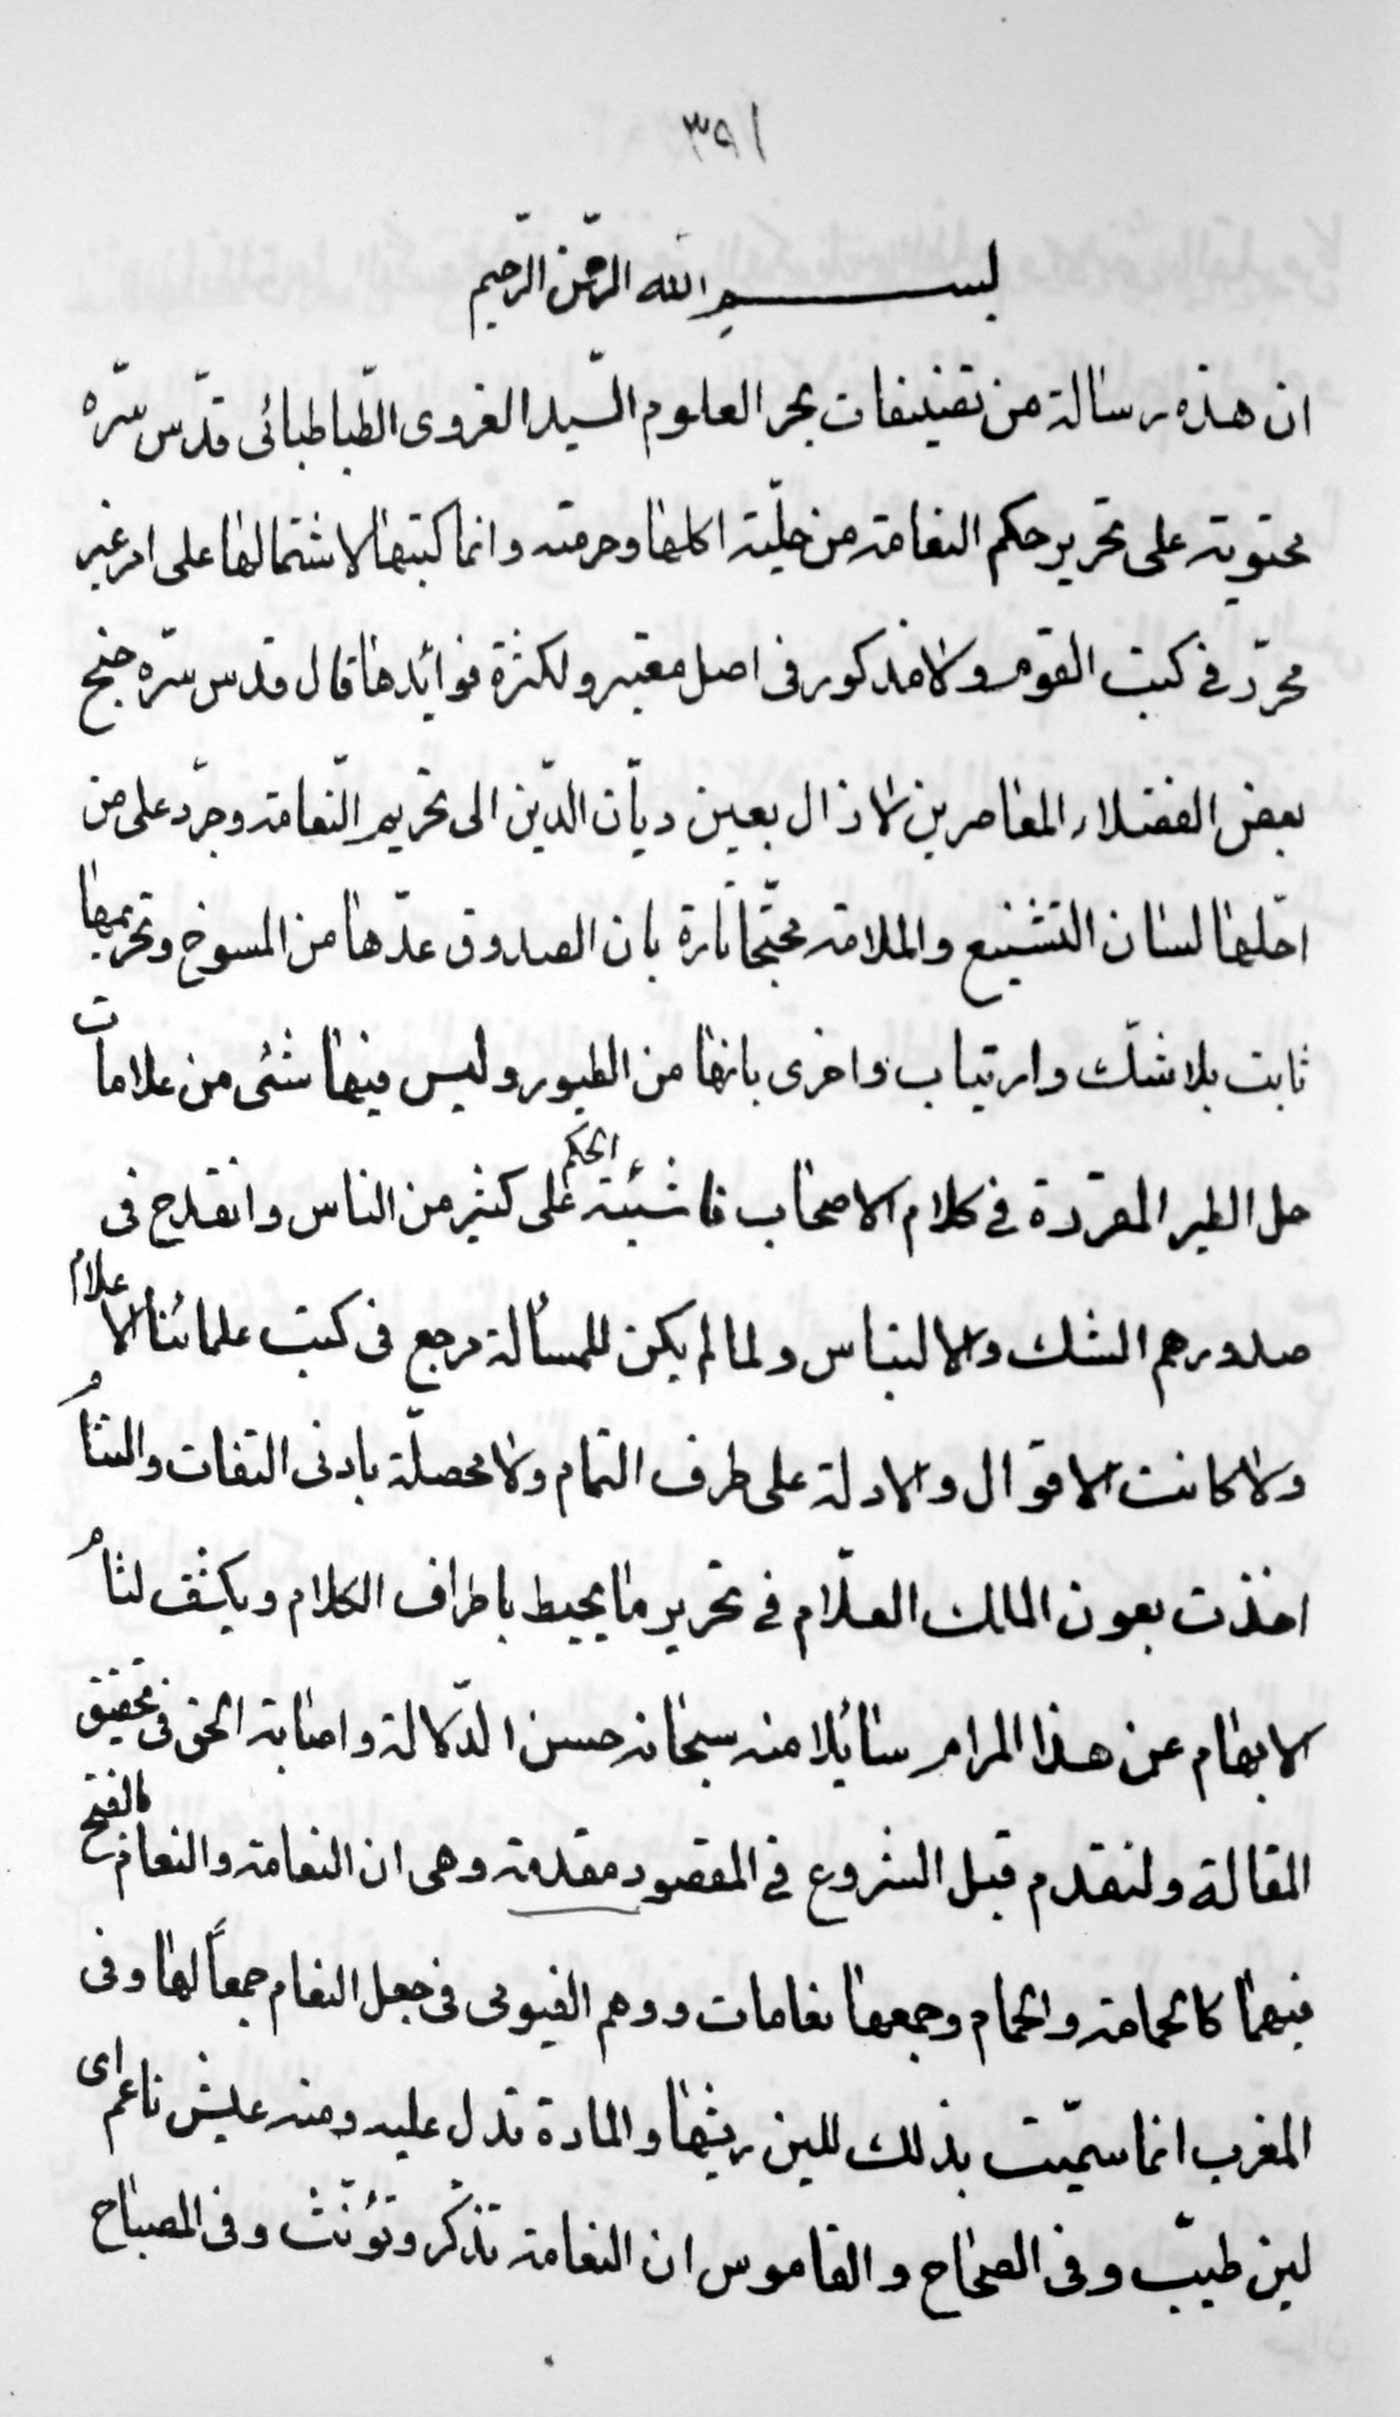 ٣٩١
بسم الله الرّحمن الرّحيم
ان هذه رسالة من تصنيفات بحر العلوم السّيد الغروى الطّباطبائى قدّس سّره
محتوية على تحرير حكم النعامة من حلّية اكلها وحرمته وانما كتبتها لاشتمالها على امر غير
محرّر في كتب القوم ولا مذكور فى اصل معتبر ولكثرة فوائدها قال قدس سّره جنح
بعض الفضلاء المعاصرين لا زال بعين ديّان الدّين الى تحريم النّعامة وجرّد على من
احّلها لسان التشنيع والملامة محتجّا تارة بان الصدوق عدّها من المسوخ وتحريمها
ثابت بلا شكّ وارتياب واخرى بانها من الطيور وليس فيها شئى من علامات
حل الطير المقررة في كلام الاصحاب فاشتبه الحكم على كثير من الناس وانقدح فى
صدورهم الشك والالتباس ولما لم يكن للمسألة مرجع فى كتب علمائنا الاعلام
ولا كانت الاقوال والادلة على طرف التمام ولا محصلّة بادنى التفات والتئام
اخذت بعون المالك العلّام في تحرير ما يحيط باطراف الكلام ويكشف لثام
الابهام عن هذا المرام سائلا منه سبحانه حسن الدّلالة واصابة الحق فى تحقيق
المقالة ولنقدم قبل الشروع في المقصود مقدمة وهى ان النعامة والنعام بالفتح
فيهما كالحمامة والحمام وجمعها نعامات ووهم الفيومى فى جعل النعام جمعاً لها وفى
المغرب انما سمّيت بذلك للين ريشها والمادة تدل عليه ومنه عيش ناعم اى
لين طيّب وفى الصحاح والقاموس ان النعامة تذكّر وتؤنّث وفى المصباح